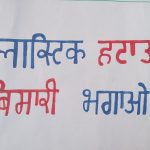 प्लास्टिक हटाओ
बिमारी भगाओ